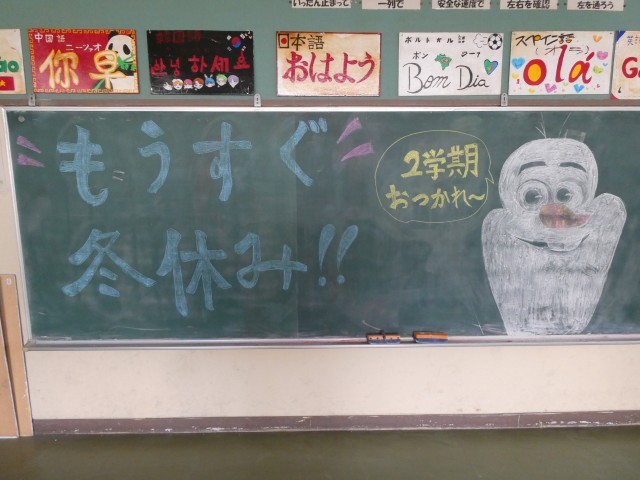 いったん止まって
一列で
安全な速度で
左右を確認
左を通ろう
中国語
ニーツァオ
你早
韓国語
안녕하세요
日本語
おはよう
ポルトガル
ボン ジーア!
Bom Dia
スペイン語
(オラ)
olá
もうすぐ
冬休み!!
2学期
おつかれ~